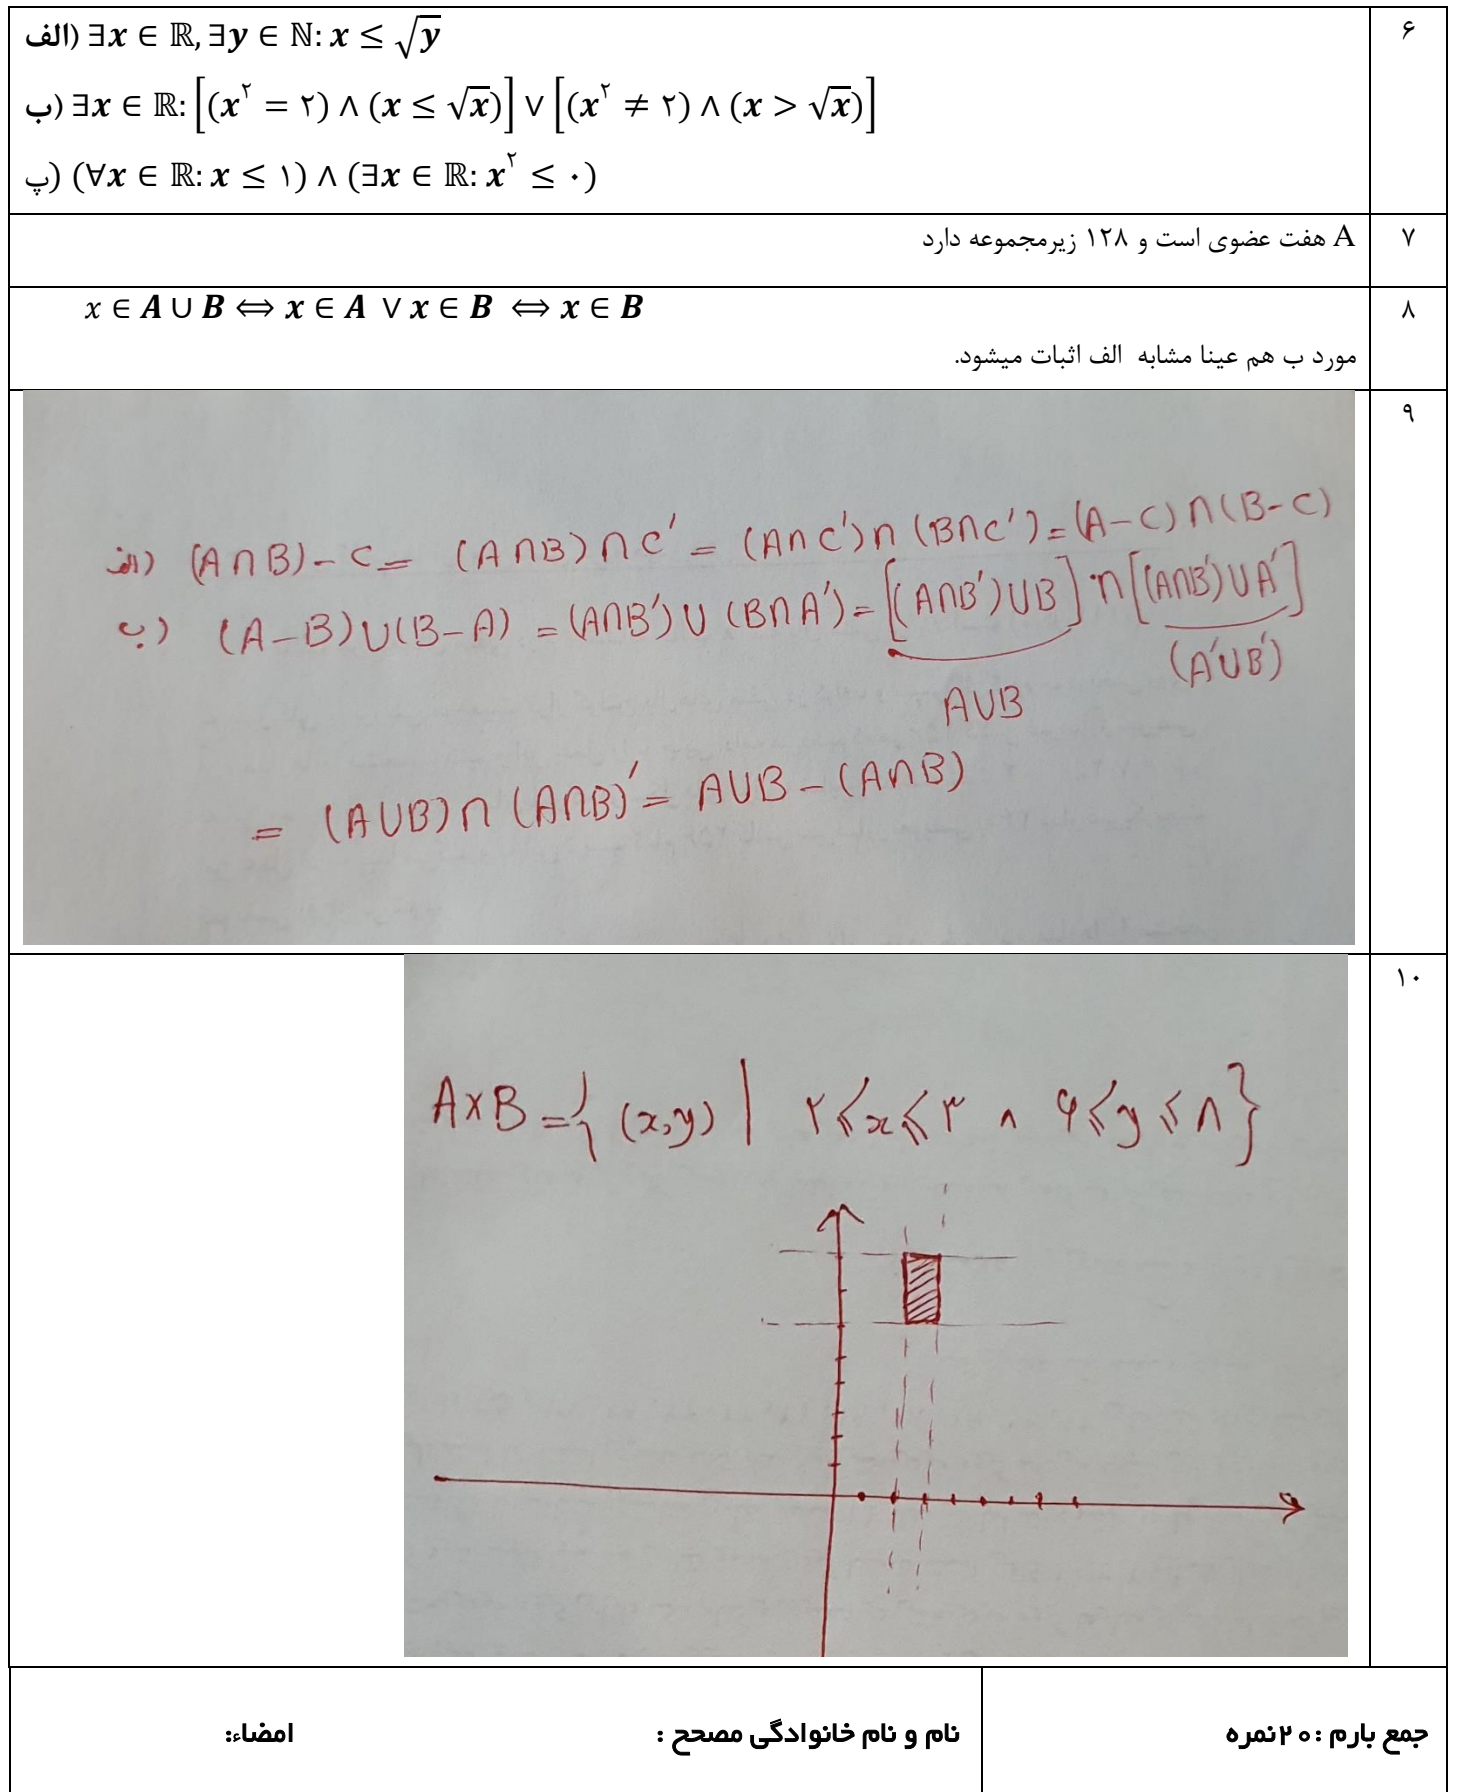 ۶
الف) ∃x ∈ ℝ, ∃y ∈ ℕ: x ≤ √y
ب) ∃x ∈ ℝ: [(x^۲ = ۲) ∧ (x ≤ √x)] ∨ [(x^۲ ≠ ۲) ∧ (x > √x)]
پ) (∀x ∈ ℝ: x ≤ ۱) ∧ (∃x ∈ ℝ: x^۲ ≤ ۰)
۷
A هفت عضوی است و ۱۲۸ زیرمجموعه دارد
۸
x ∈ A ∪ B ⟺ x ∈ A ∨ x ∈ B ⟺ x ∈ B
مورد ب هم عینا مشابه الف اثبات میشود.
۹
الف) (A∩B)-C = (A∩B)∩C' = (A∩C')∩(B∩C') = (A-C)∩(B-C)
ب) (A-B)∪(B-A) = (A∩B')∪(B∩A') = [(A∩B')∪B]∩[(A∩B')∪A']
A∪B (A'∪B')
= (A∪B)∩(A∩B)' = A∪B-(A∩B)
۱۰
A×B = {(x,y) | ۲⩽x⩽۳ ∧ ۶⩽y⩽۸}
جمع بارم :۲۰نمره
نام و نام خانوادگی مصحح :
امضاء: